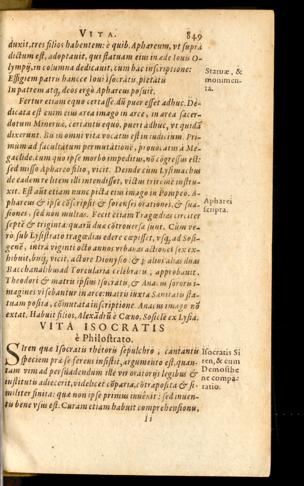 VITA. 849
duxit, tres filios habentem: è quib. Aphareum, vt supra
dictum est, adoptauit, qui statuam eius in æde Iouis O-
lympij, in columna dedicauit, cum hac inscriptione:
Effigiem patris hancce Ioui Isocratis, pietatis
In patrem atq; deos ergò Aphareus posuit.
Statuæ, &
monumen-
ta.
Fertur etiam equo certasse, dū puer esset adhuc. De-
dicata est enim eius area imago in arce, in area sacer-
dotum Mineruæ, certantis equo, pueri adhuc, vt quidā
dixerunt. Bis in omni vita vocatus est in iudicium. Pri-
mùm ad facultatum permutationē, prouocatus à Me-
gaclide. cum quo ipse morbo impeditus, nō cōgressus est:
sed misso Aphareo filio, vicit. Deinde cùm Lysimachus
de eadem re litem illi intendisset, victus triremē instru-
xit. Est aūt etiam nunc picta eius imago in Pompeo. A-
phareus & ipse cōscripsit & forenses orationes, & sua-
siones, sed non multas. Fecit etiam Tragœdias circiter
Apharei
scripta.
septē & triginta: quarū duæ cōtrouersæ sunt. Cùm ve-
rò sub Lysistrato tragœdias edere cœpisset, vsq; ad Sosi-
genē, intra viginti octo annos vrbanas actiones sex ex-
hibuit, bisq; vicit, actore Dionysio: & p alios alias duas
Bacchanalibus ad Torcularia celebratis, approbauit.
Theodori & matris ipsius Isocratis, & Anacus sororis i-
magines visebantur in arce: matris iuxta Sanitatis sta-
tuam posita, cōmutata inscriptione. Anacus imago nō
extat. Habuit filios, Alexādrū è Cœno, Sosiclē ex Lysia.
VITA ISOCRATIS
è Philostrato.
Siren quæ Isocratis rhetoris sepulchro, cantantis
speciem præ se ferens insistit, argumento est, quan-
tam vim ad persuadendum ille vir oratorijs legibus &
institutis adiecerit, videlicet cōparia, cōtraposita & si-
militer finita: quæ non ipse primus inuēnit: sed inuen-
tis bene vsus est. Curam etiam habuit comprehensionis,
Isocratis Si
ren, & cum
Demosthe
ne compa-
ratio.
Ii